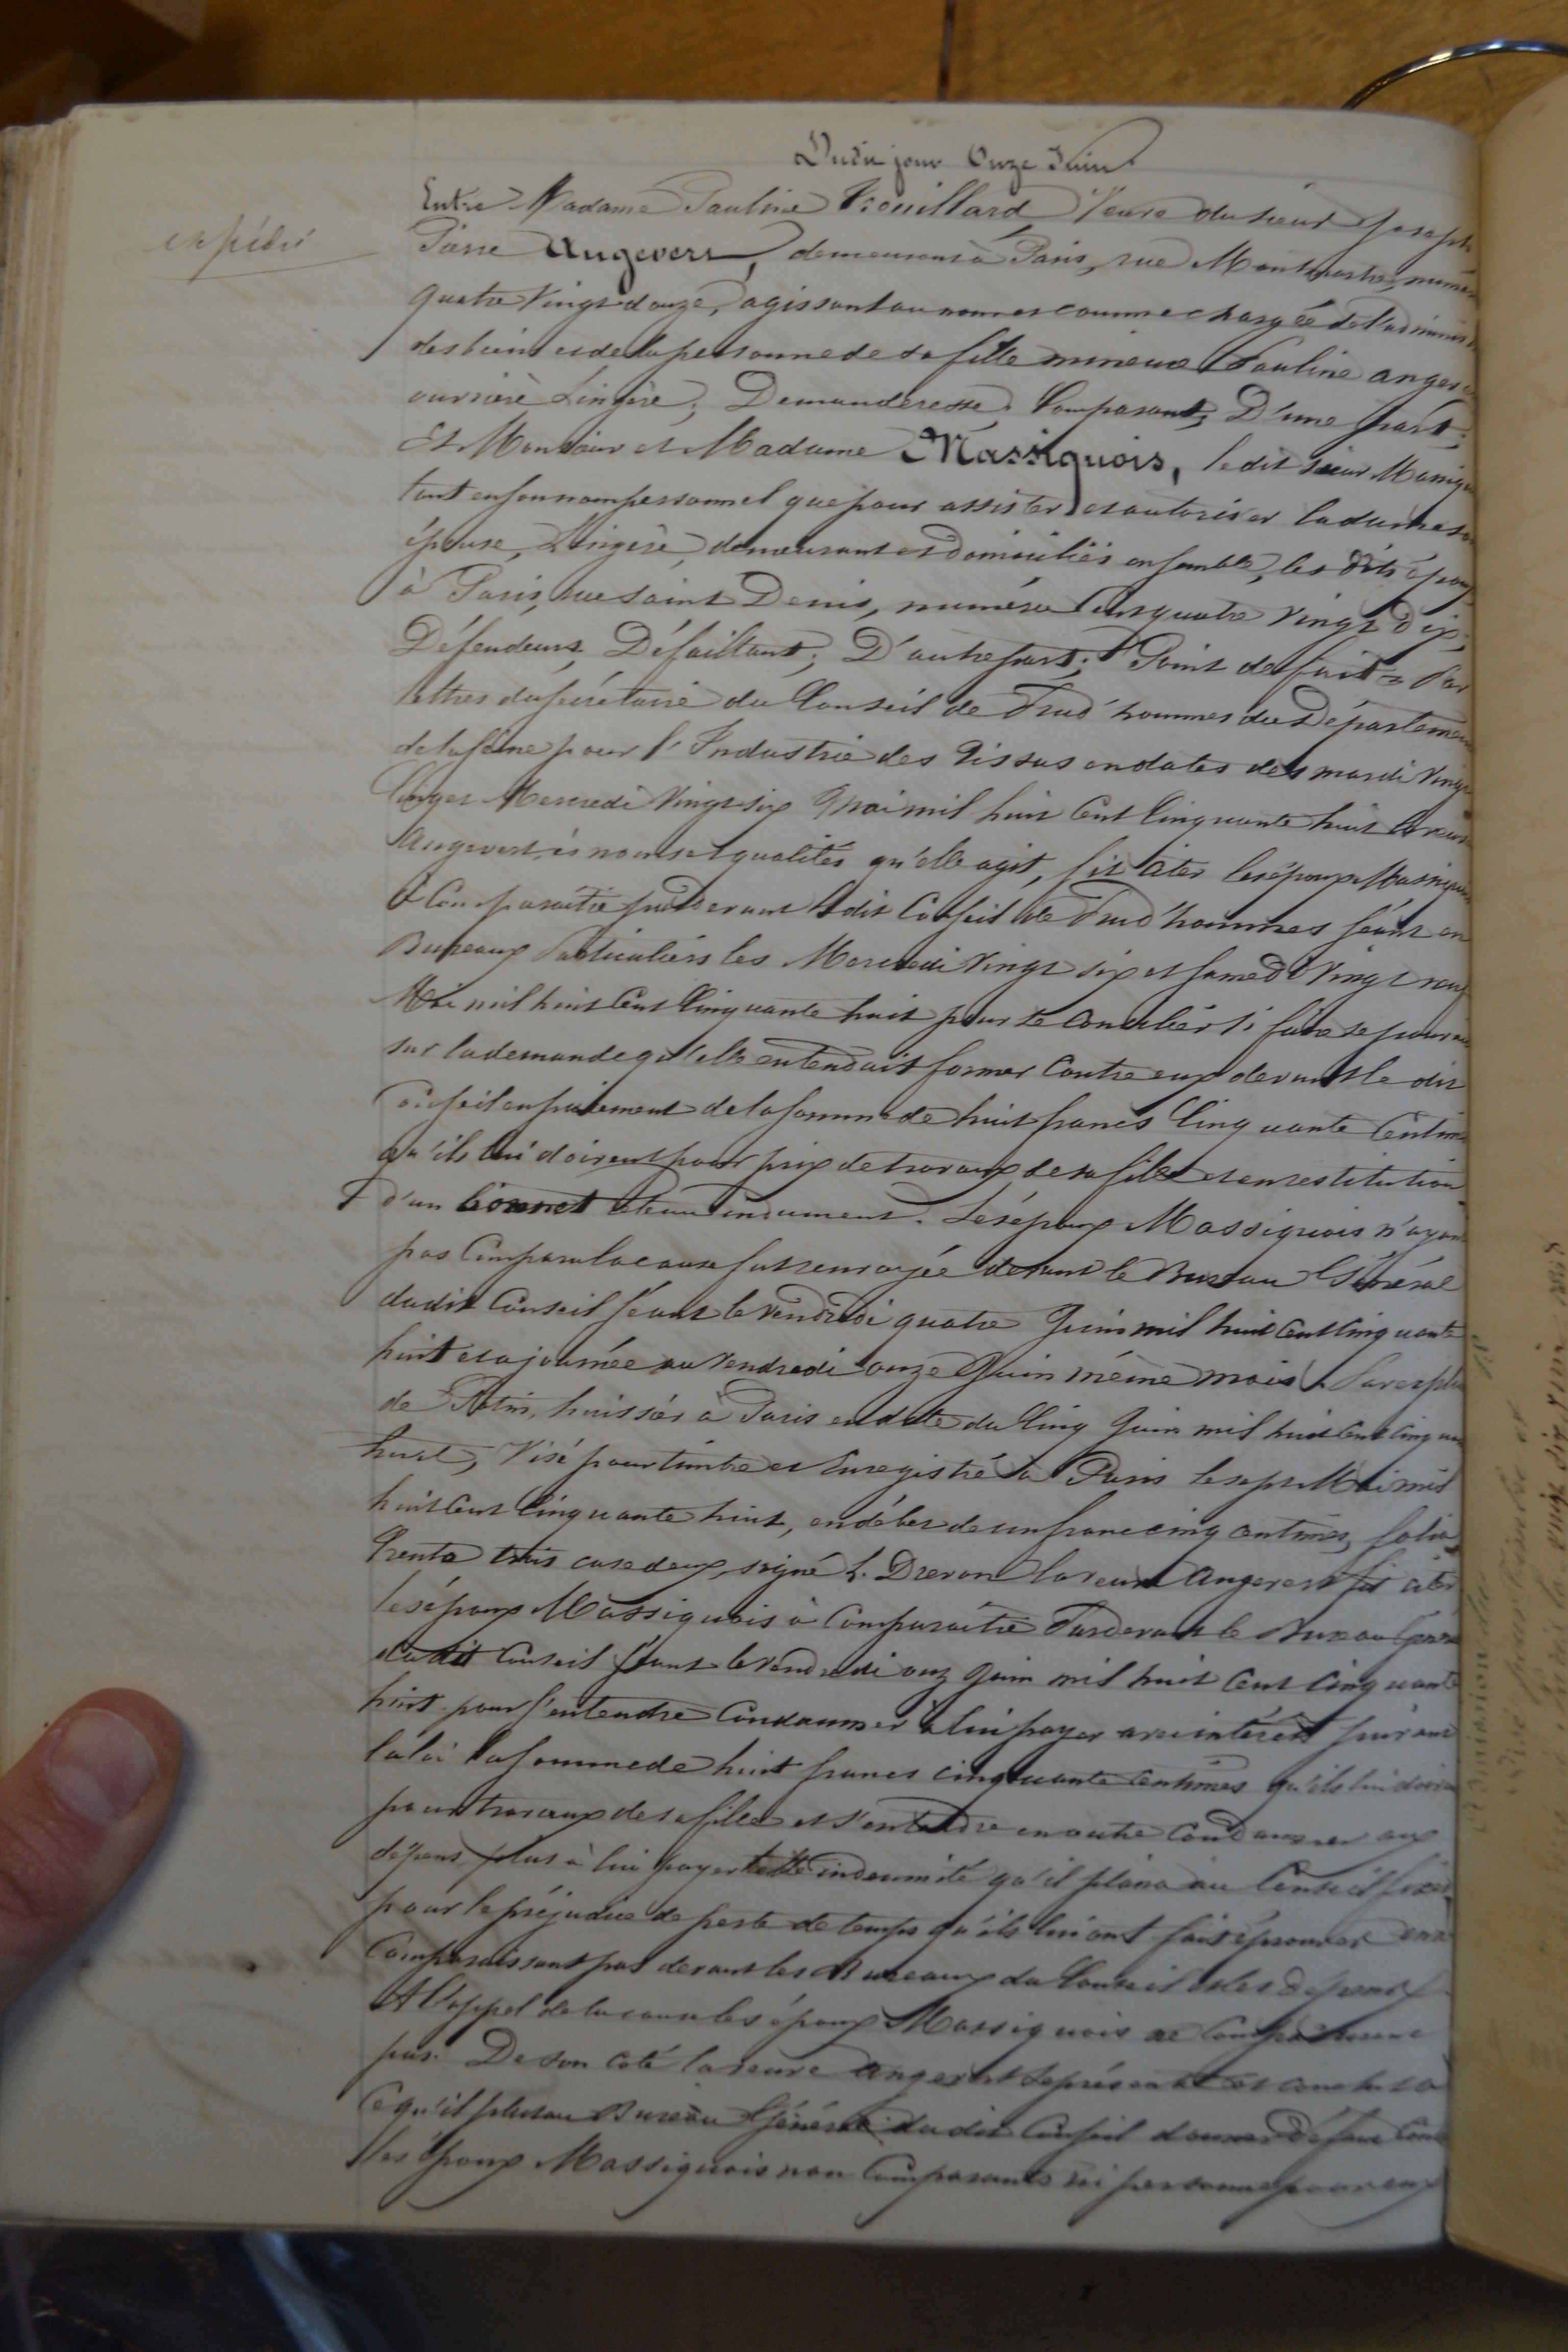 Dudit jour Onze Juin
expédié
Entre Madame Pauline Trouillard Veuve du sieur Joseph
Pierre Angevert, demeurant à Paris, rue Montmartre, numéro
quatre Vingt douze, agissant au nom et comme chargée de l'adminis
des biens et de la personne de sa fille mineure Pauline angev
ouvrière Lingère; Demanderesse; Comparant; D'une part;
Et Monsieur et Madame Massiquois, le dit sieur Massiqu
tant en son nom personnel que pour assister et autoriser la dame son
épouse, Lingère, demeurant et domiciliés ensemble, les dits époux
à Paris, rue Saint Denis, numéro Cent quatre Vingt dix;
Défendeurs, Défaillant; D'autre part; Point de fait = Par
lettres du secrétaire du Conseil de Prud'hommes du Département
de la seine pour l'Industrie des Tissus en dates des mardi Vingt
Cinq et Mercredi Vingt six Mai mil huit Cent Cinquante huit la veuve
Angevert, ès noms et qualités qu'elle agit, fit citer les époux Massiquois
à Comparaître par devant le dit Conseil de Prud'hommes séant en
Bureaux Particuliers les Mercredi Vingt six et samedi Vingt neuf
Mai mil huit Cent Cinquante huit pour se concilier si faire se pouvait
sur la demande qu'elle entendait former Contre eux devant le dit
Conseil en paiement de la somme de huit francs Cinquante Centimes
qu'ils lui doivent pour prix de travaux de sa fille et en restitution
d'un bonnet retenu indument. Les époux Massiquois n'ayant
pas Comparu la cause fut renvoyée devant le Bureau Général
dudit Conseil séant le Vendredi quatre Juin mil huit Cent Cinquante
huit et ajournée au Vendredi onze Juin même mois. Par exploit
de huissier à Paris en date du Cinq Juin mil huit Cent Cinquante
huit, Visé pour timbre et Enregistré à Paris le sept Mai mil
huit Cent Cinquante huit, en débet de un franc cinq centimes, folio
Trente trois case deux, signé la veuve Angevert fit citer
les époux Massiquois à Comparaître Pardevant le Bureau Général
dudit Conseil séant le Vendredi onze Juin mil huit Cent Cinquante
huit pour s'entendre Condamner à lui payer avec intérêts suivant
la loi la somme de huit francs cinquante Centimes qu'ils lui doivent
pour travaux de sa fille et s'entendre en outre Condamner aux
dépens plus à lui payer telle indemnité qu'il plaira au Conseil fixer
pour le préjudice de perte de temps qu'ils lui ont fait éprouver en ne
Comparaissant pas devant les Bureaux du Conseil et les dépens.
A l'appel de la cause les époux Massiquois ne Comparurent
pas. De son coté la veuve Angevert se présenta et conclut à
Ce qu'il plut au Bureau Général dudit Conseil donner Défaut Contre
les époux Massiquois non Comparants ni personne pour eux